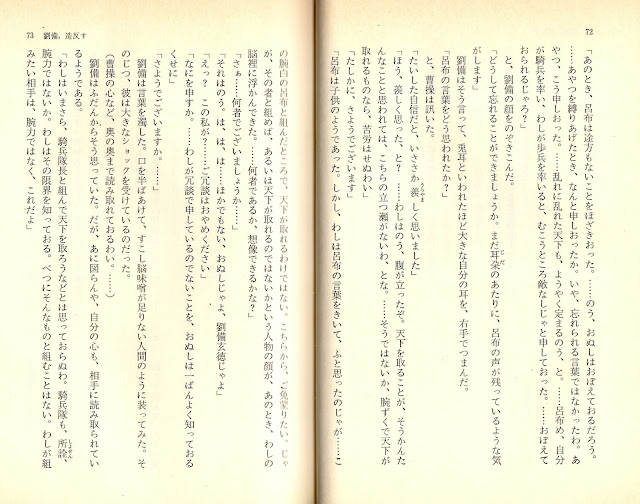 72
「あのとき、呂布は途方もないことをほざきおった。……のう、おぬしはおぼえておるだろう。
……あやつを縛りあげたとき、なんと申しおったか。いや、忘れられる言葉ではなかったわ。あ
やつ、こう申しおった。……乱れに乱れた天下も、ようやく定まるのう、と。……呂布め、自分
が騎兵を率い、わしが歩兵を率いると、むこうところ敵なしじゃと申しておった。……おぼえて
おられるじゃろ？」
と、劉備の顔をのぞきこんだ。
「どうして忘れることができましょうか。まだ耳朶のあたりに、呂布の声が残っているような気
がします」
劉備はそう言って、兎耳といわれたほど大きな自分の耳を、右手でつまんだ。
「呂布の言葉をどう思われたか？」
と、曹操は訊いた。
「たいした自信だと、いささか羨しく思いました」
「ほう、羨しく思った、と？……わしはのう、腹が立ったぞ。天下を取ることが、そうかんた
んなことと思われては、こちらの立つ瀬がないわ、とな。……そうではないか、腕ずくで天下が
取れるものなら、苦労はせぬわい」
「たしかに、さようでございます」
「呂布は子供のようであった。しかし、わしは呂布の言葉をきいて、ふと思ったのじゃが……こ
73 劉備、造反す
の腕白の呂布と組んだところで、天下が取れるわけではない。こちらから、ご免蒙りたい。じゃ
が、その者と組めば、あるいは天下が取れるのではないかという人物の顔が、あのとき、わしの
脳裡に浮かんできた。……何者であるか、想像できるかな？」
「さぁ……何者でございましょうか……」
「それはのう、は、は、は……ほかでもない、おぬしじゃよ、劉備玄徳じゃよ」
「えっ？　この私が？……ご冗談はおやめください」
「なにを申すか。……わしが冗談で申しているのでないことを、おぬしは一ばんよく知っておる
くせに」
「さようでございますか。……」
劉備は言葉を濁した。口を半ばあけて、すこし脳味噌が足りない人間のように装ってみた。そ
のじつ、彼は大きなショックを受けているのだった。
（曹操の心など、奥の奥まで読み取れておるわい。……）
劉備はふだんからそう思っていた。だが、あに図らんや、自分の心も、相手に読み取られてい
るようである。
「わしはいまさら、騎兵隊長と組んで天下を取ろうなどとは思っておらぬわ。騎兵隊も、所詮、
腕力ではないか。わしはその限界を知っておる。べつにそんなものと組むことはない。わしが組
みたい相手は、腕力ではなく、これだよ」